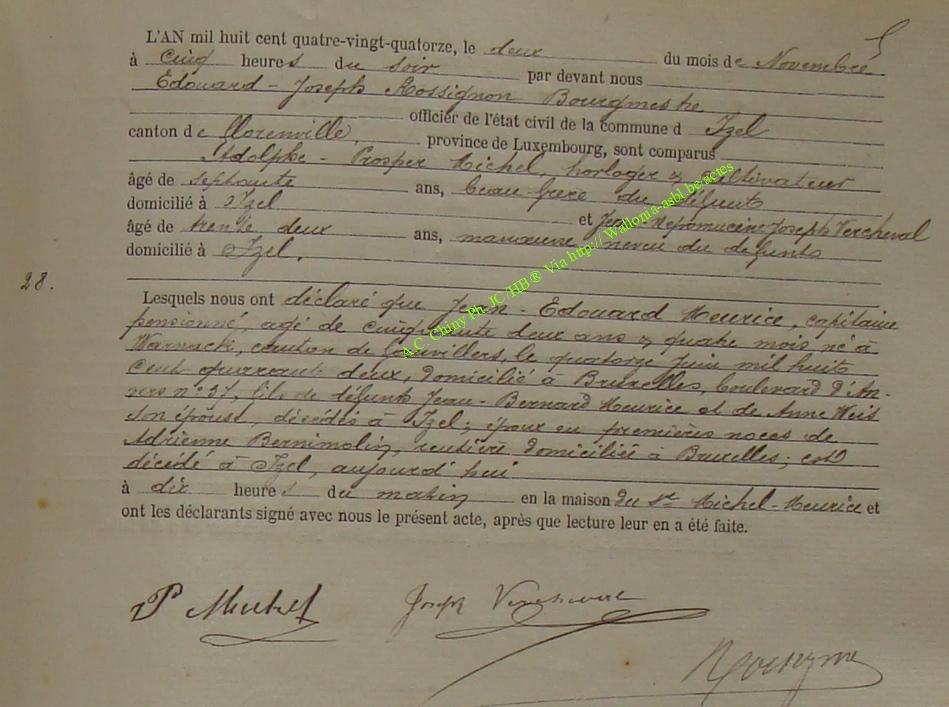 L'AN mil huit cent quatre-vingt-quatorze, le deux du mois de Novembre
à cinq heures du soir par devant nous
Edouard - Joseph Rossignon Bourgmestre
officier de l'état civil de la commune d Izel
canton de florenville, province de Luxembourg, sont comparus
Adolphe - Prosper Michel, horloger & cultivateur
âgé de septante ans, beau frère du défunt
domicilié à Izel et Jean Nepomucène Joseph Vercheval
âgé de trente deux ans, manœuvre neveu du defunt
domicilié à Izel.
28.
Lesquels nous ont déclaré que Jean - Edouard Meurice, capitaine
pensionné, agé de cinquante deux ans & quatre mois né à
Warnack, canton de le quatorze Juin mil huit
cent quarrant deux, domicilié à Bruxelles, boulevard d'An-
vers n° 37, fils de défunt Jean - Bernard Meurice et de Anne Weis
son épouse, décédés à Izel; époux en premières noces de
Adrienne Bernimolin, rentière domiciliée à Bruxelles; est
décédé à Izel, aujourd'hui
à dix heures du matin en la maison du Sr Michel - Meurice et
ont les déclarants signé avec nous le présent acte, après que lecture leur en a été faite.
A.C. Chiny Ph. JC /HB ® Via http:// Wallonia-asbl.be/actes
P Michel
Joseph Vercheval
Rossignon